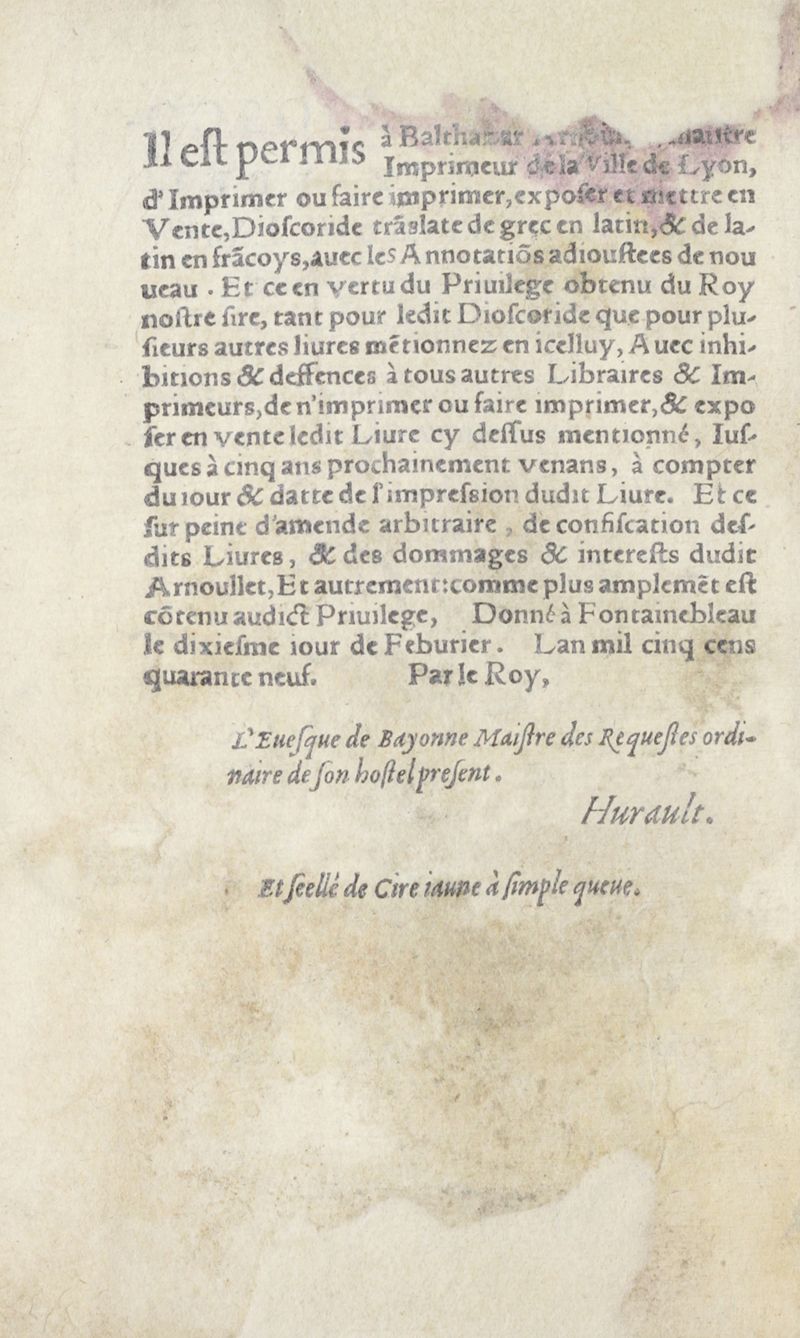 Il eſt permis à Balthaſar
Imprimeur de la Ville de Lyon,
d'Imprimer ou faire imprimer, expoſer et mettre en
Vente, Dioſcoride trãslate de grec en latin, & de la-
tin en frãcoys, auec les Annotatiõs adiouſtees de nou
ueau . Et ce en vertu du Priuilege obtenu du Roy
noſtre ſire, tant pour ledit Dioſcoride que pour plu-
ſieurs autres liures mẽtionnez en icelluy, Auec inhi-
bitions & deffences à tous autres Libraires & Im-
primeurs, de n'imprimer ou faire imprimer, & expo
ſer en vente ledit Liure cy deſſus mentionné, Iuſ-
ques à cinq ans prochainement venans, à compter
du iour & datte de l'impreſsion dudit Liure. Et ce
ſur peine d'amende arbitraire , de confiſcation deſ-
dits Liures, & des dommages & intereſts dudit
Arnoullet, Et autrement: comme plus amplemẽt eſt
cõtenu audict Priuilege, Donné à Fontainebleau
le dixieſme iour de Feburier. Lan mil cinq cens
quarante neuf. Par le Roy,
L'Eueſque de Bayonne Maiſtre des Requeſtes ordi-
naire de ſon hoſtel preſent.
Hurault.
Et ſeellé de Cire iaune à ſimple queue.